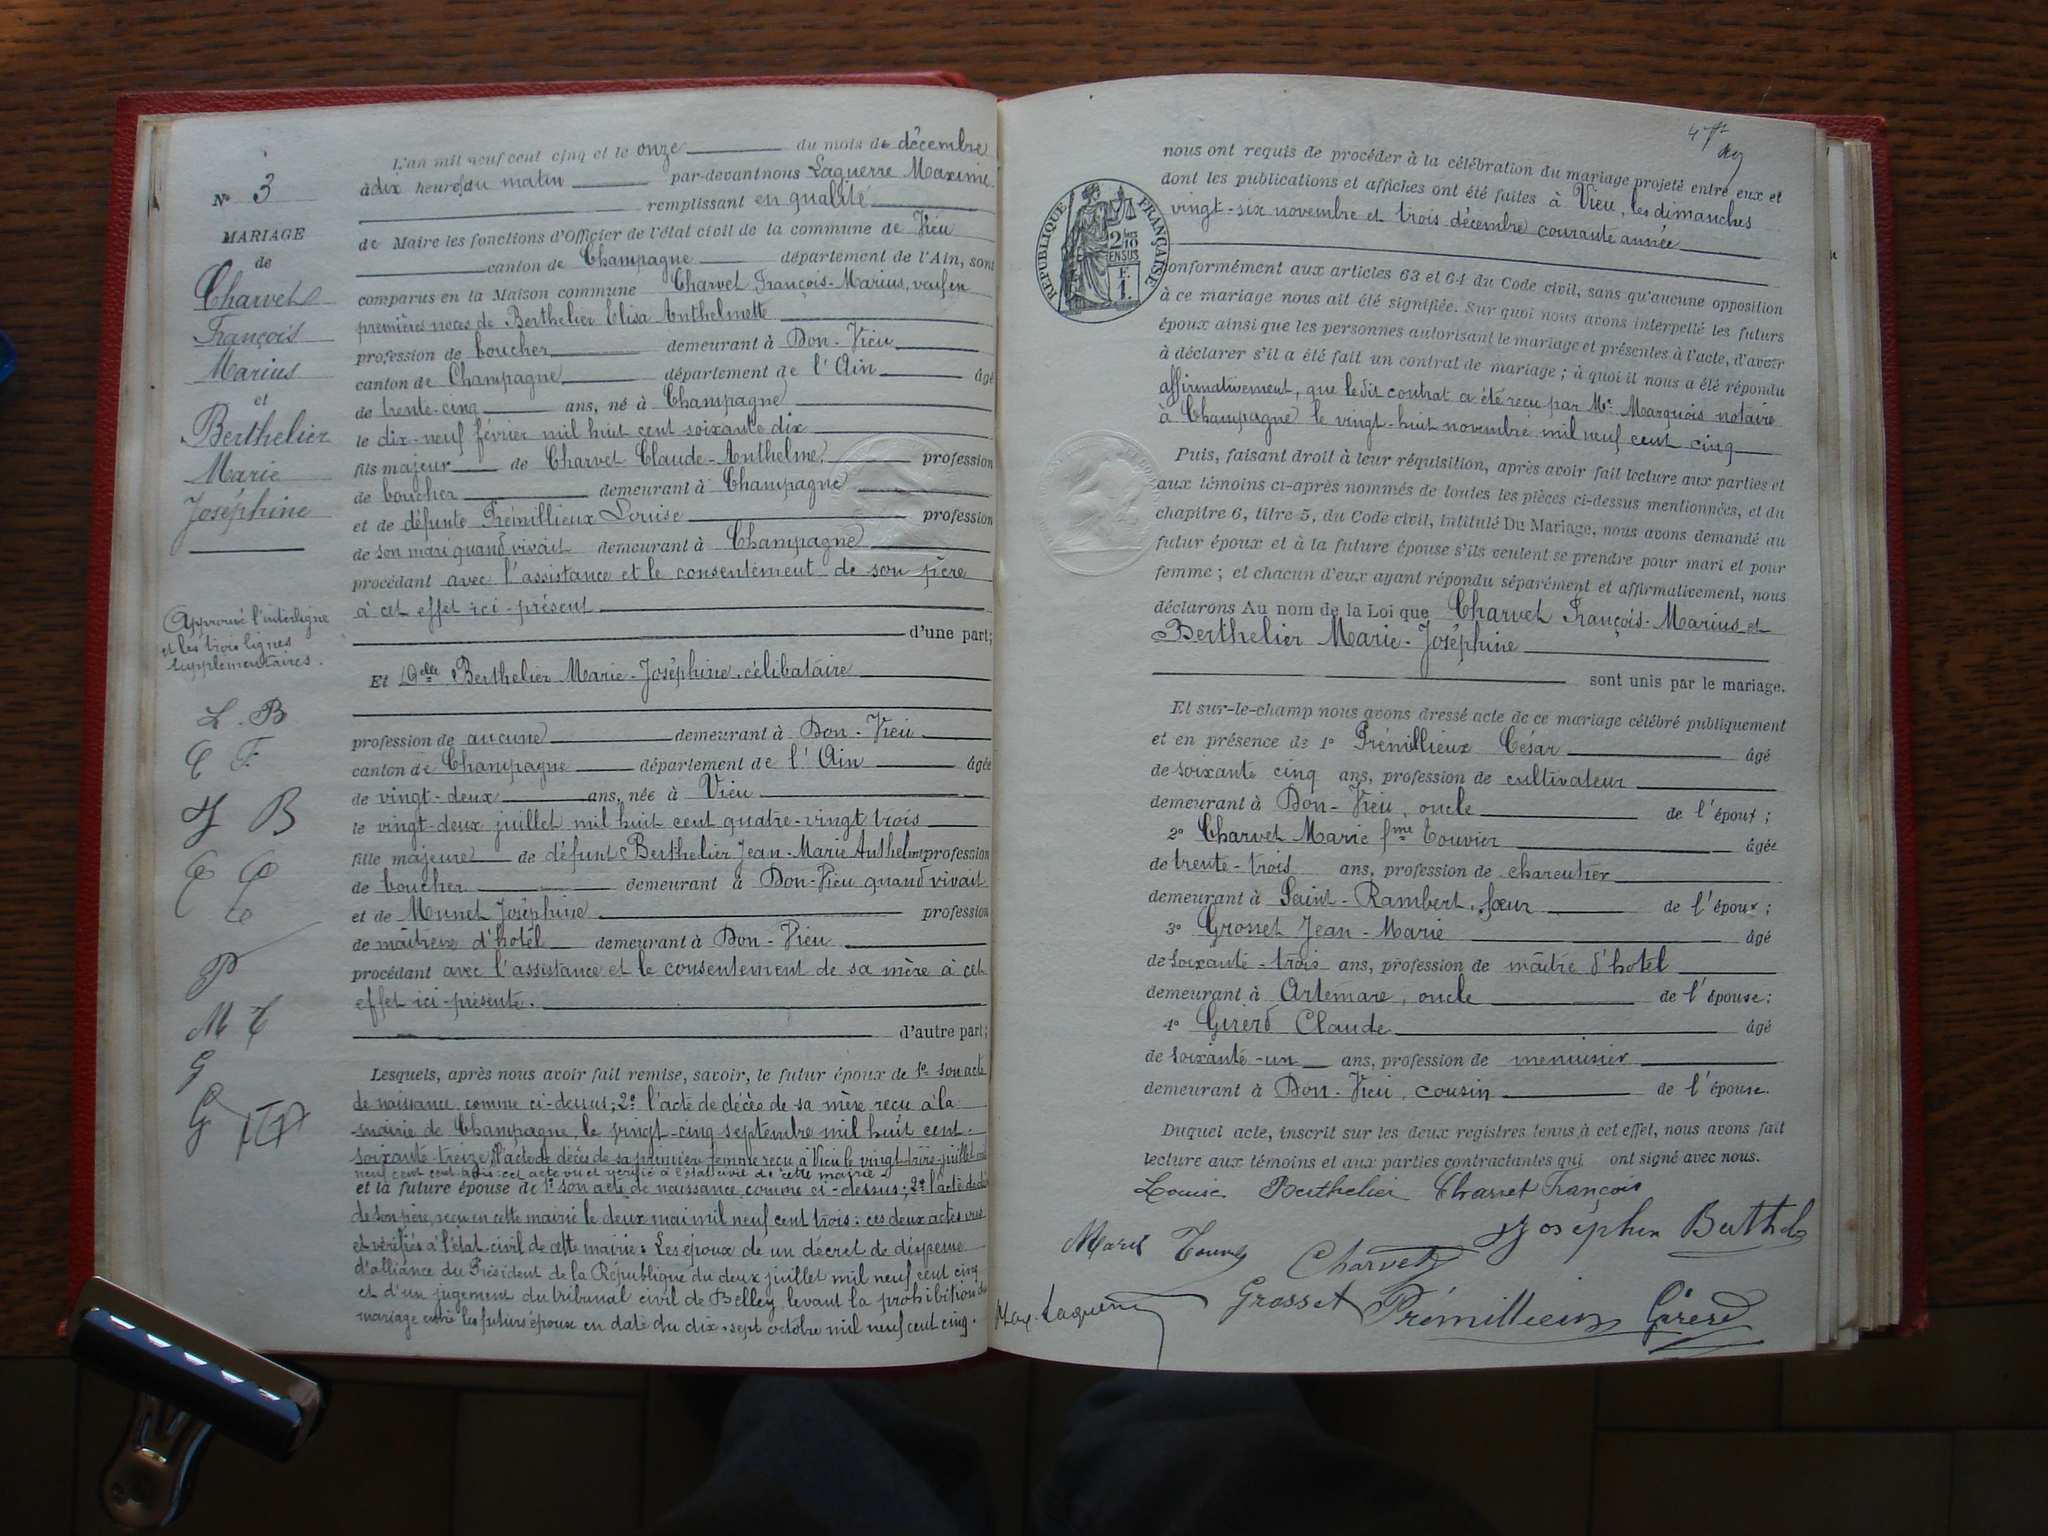 N° 3
MARIAGE
de
Charvet
François
Marius
et
Berthelier
Marie
Joséphine
Approuvé l'interligne
et les trois lignes
supplémentaires.
L. B
C F.
J B
C C
P
M T
G
G
L'an mil neuf cent cinq et le onze du mois de décembre
à dix heures du matin par-devant nous Laguerre Maxime
remplissant en qualité
de Maire les fonctions d'Officier de l'état civil de la commune de Vieu
canton de Champagne département de l'Ain, sont
comparus en la Maison commune Charvet François-Marius, veuf en
premières noces de Berthelier Elisa Anthelmette
profession de boucher demeurant à Don-Vieu
canton de Champagne département de l'Ain âgé
de trente-cinq ans, né à Champagne
le dix-neuf février mil huit cent soixante dix
fils majeur de Charvet Claude-Anthelme profession
de boucher demeurant à Champagne
et de défunte Prémillieux Louise profession
de son mari quand vivait demeurant à Champagne
procédant avec l'assistance et le consentement de son père
à cet effet ici-présent
d'une part;
Et Delle Berthelier Marie-Joséphine, célibataire
profession de aucune demeurant à Don-Vieu
canton de Champagne département de l'Ain âgée
de vingt-deux ans, née à Vieu
le vingt-deux juillet mil huit cent quatre-vingt trois
fille majeure de défunt Berthelier Jean-Marie Anthelme profession
de boucher demeurant à Don-Vieu quand vivait
et de Munet Joséphine profession
de maîtresse d'hôtel demeurant à Don-Vieu
procédant avec l'assistance et le consentement de sa mère à cet
effet ici-présente.
d'autre part;
Lesquels, après nous avoir fait remise, savoir, le futur époux de 1° son acte
de naissance comme ci-dessus; 2° l'acte de décès de sa mère reçu à la
mairie de Champagne, le vingt-cinq septembre mil huit cent
soixante-treize, l'acte de décès de sa première femme reçu à Vieu le vingt-treize juillet mil
neuf cent cet acte vu et vérifié à l'état civil de cette mairie
et la future épouse de 1° son acte de naissance comme ci-dessus; 2° l'acte de décès
de son père, reçu en cette mairie le deux mai mil neuf cent trois: ces deux actes vus
et vérifiés à l'état-civil de cette mairie. Les époux de un décret de dispense
d'alliance du Président de la République du deux juillet mil neuf cent cinq
et d'un jugement du tribunal civil de Belley levant la prohibition du
mariage entre les futurs époux en date du dix-sept octobre mil neuf cent cinq.
RÉPUBLIQUE FRANÇAISE
2/10
EN SUS
F.
1.
nous ont requis de procéder à la célébration du mariage projeté entre eux et
dont les publications et affiches ont été faites à Vieu, les dimanches
vingt-six novembre et trois décembre courante année
conformément aux articles 63 et 64 du Code civil, sans qu'aucune opposition
à ce mariage nous ait été signifiée. Sur quoi nous avons interpellé les futurs
époux ainsi que les personnes autorisant le mariage et présentes à l'acte, d'avoir
à déclarer s'il a été fait un contrat de mariage; à quoi il nous a été répondu
affirmativement, que ledit contrat a été reçu par Me Marquois notaire
à Champagne le vingt-huit novembre mil neuf cent cinq
Puis, faisant droit à leur réquisition, après avoir fait lecture aux parties et
aux témoins ci-après nommés de toutes les pièces ci-dessus mentionnées, et du
chapitre 6, titre 5, du Code civil, intitulé Du Mariage, nous avons demandé au
futur époux et à la future épouse s'ils veulent se prendre pour mari et pour
femme; et chacun d'eux ayant répondu séparément et affirmativement, nous
déclarons Au nom de la Loi que Charvet François-Marius et
Berthelier Marie-Joséphine
sont unis par le mariage.
Et sur-le-champ nous avons dressé acte de ce mariage célébré publiquement
et en présence de 1° Prémillieux César âgé
de soixante cinq ans, profession de cultivateur
demeurant à Don-Vieu, oncle de l'époux;
2° Charvet Marie fme Touvier âgée
de trente-trois ans, profession de charcutier
demeurant à Saint-Rambert, sœur de l'époux;
3° Grosset Jean-Marie âgé
de soixante-trois ans, profession de maître d'hôtel
demeurant à Artemare, oncle de l'épouse;
4° Girerd Claude âgé
de soixante-un ans, profession de menuisier
demeurant à Don-Vieu, cousin de l'épouse.
Duquel acte, inscrit sur les deux registres tenus à cet effet, nous avons fait
lecture aux témoins et aux parties contractantes qui ont signé avec nous.
Louise Berthelier Charvet François
Joséphin Berthel
Charvet
Grosset Prémillieux Girerd
Max. Laguerre